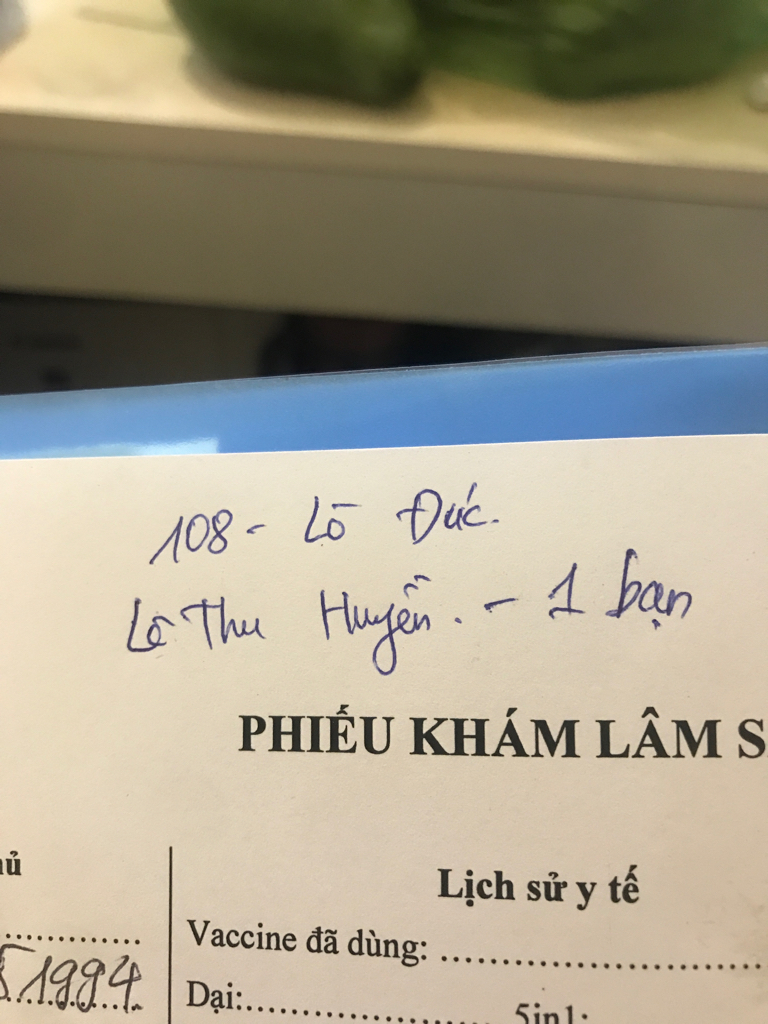 108 - Lò Đức.
Lê Thu Huyền. - 1 bạn
PHIẾU KHÁM LÂM S
ủ
Lịch sử y tế
Vaccine đã dùng:
1994
Dại: 5in1: